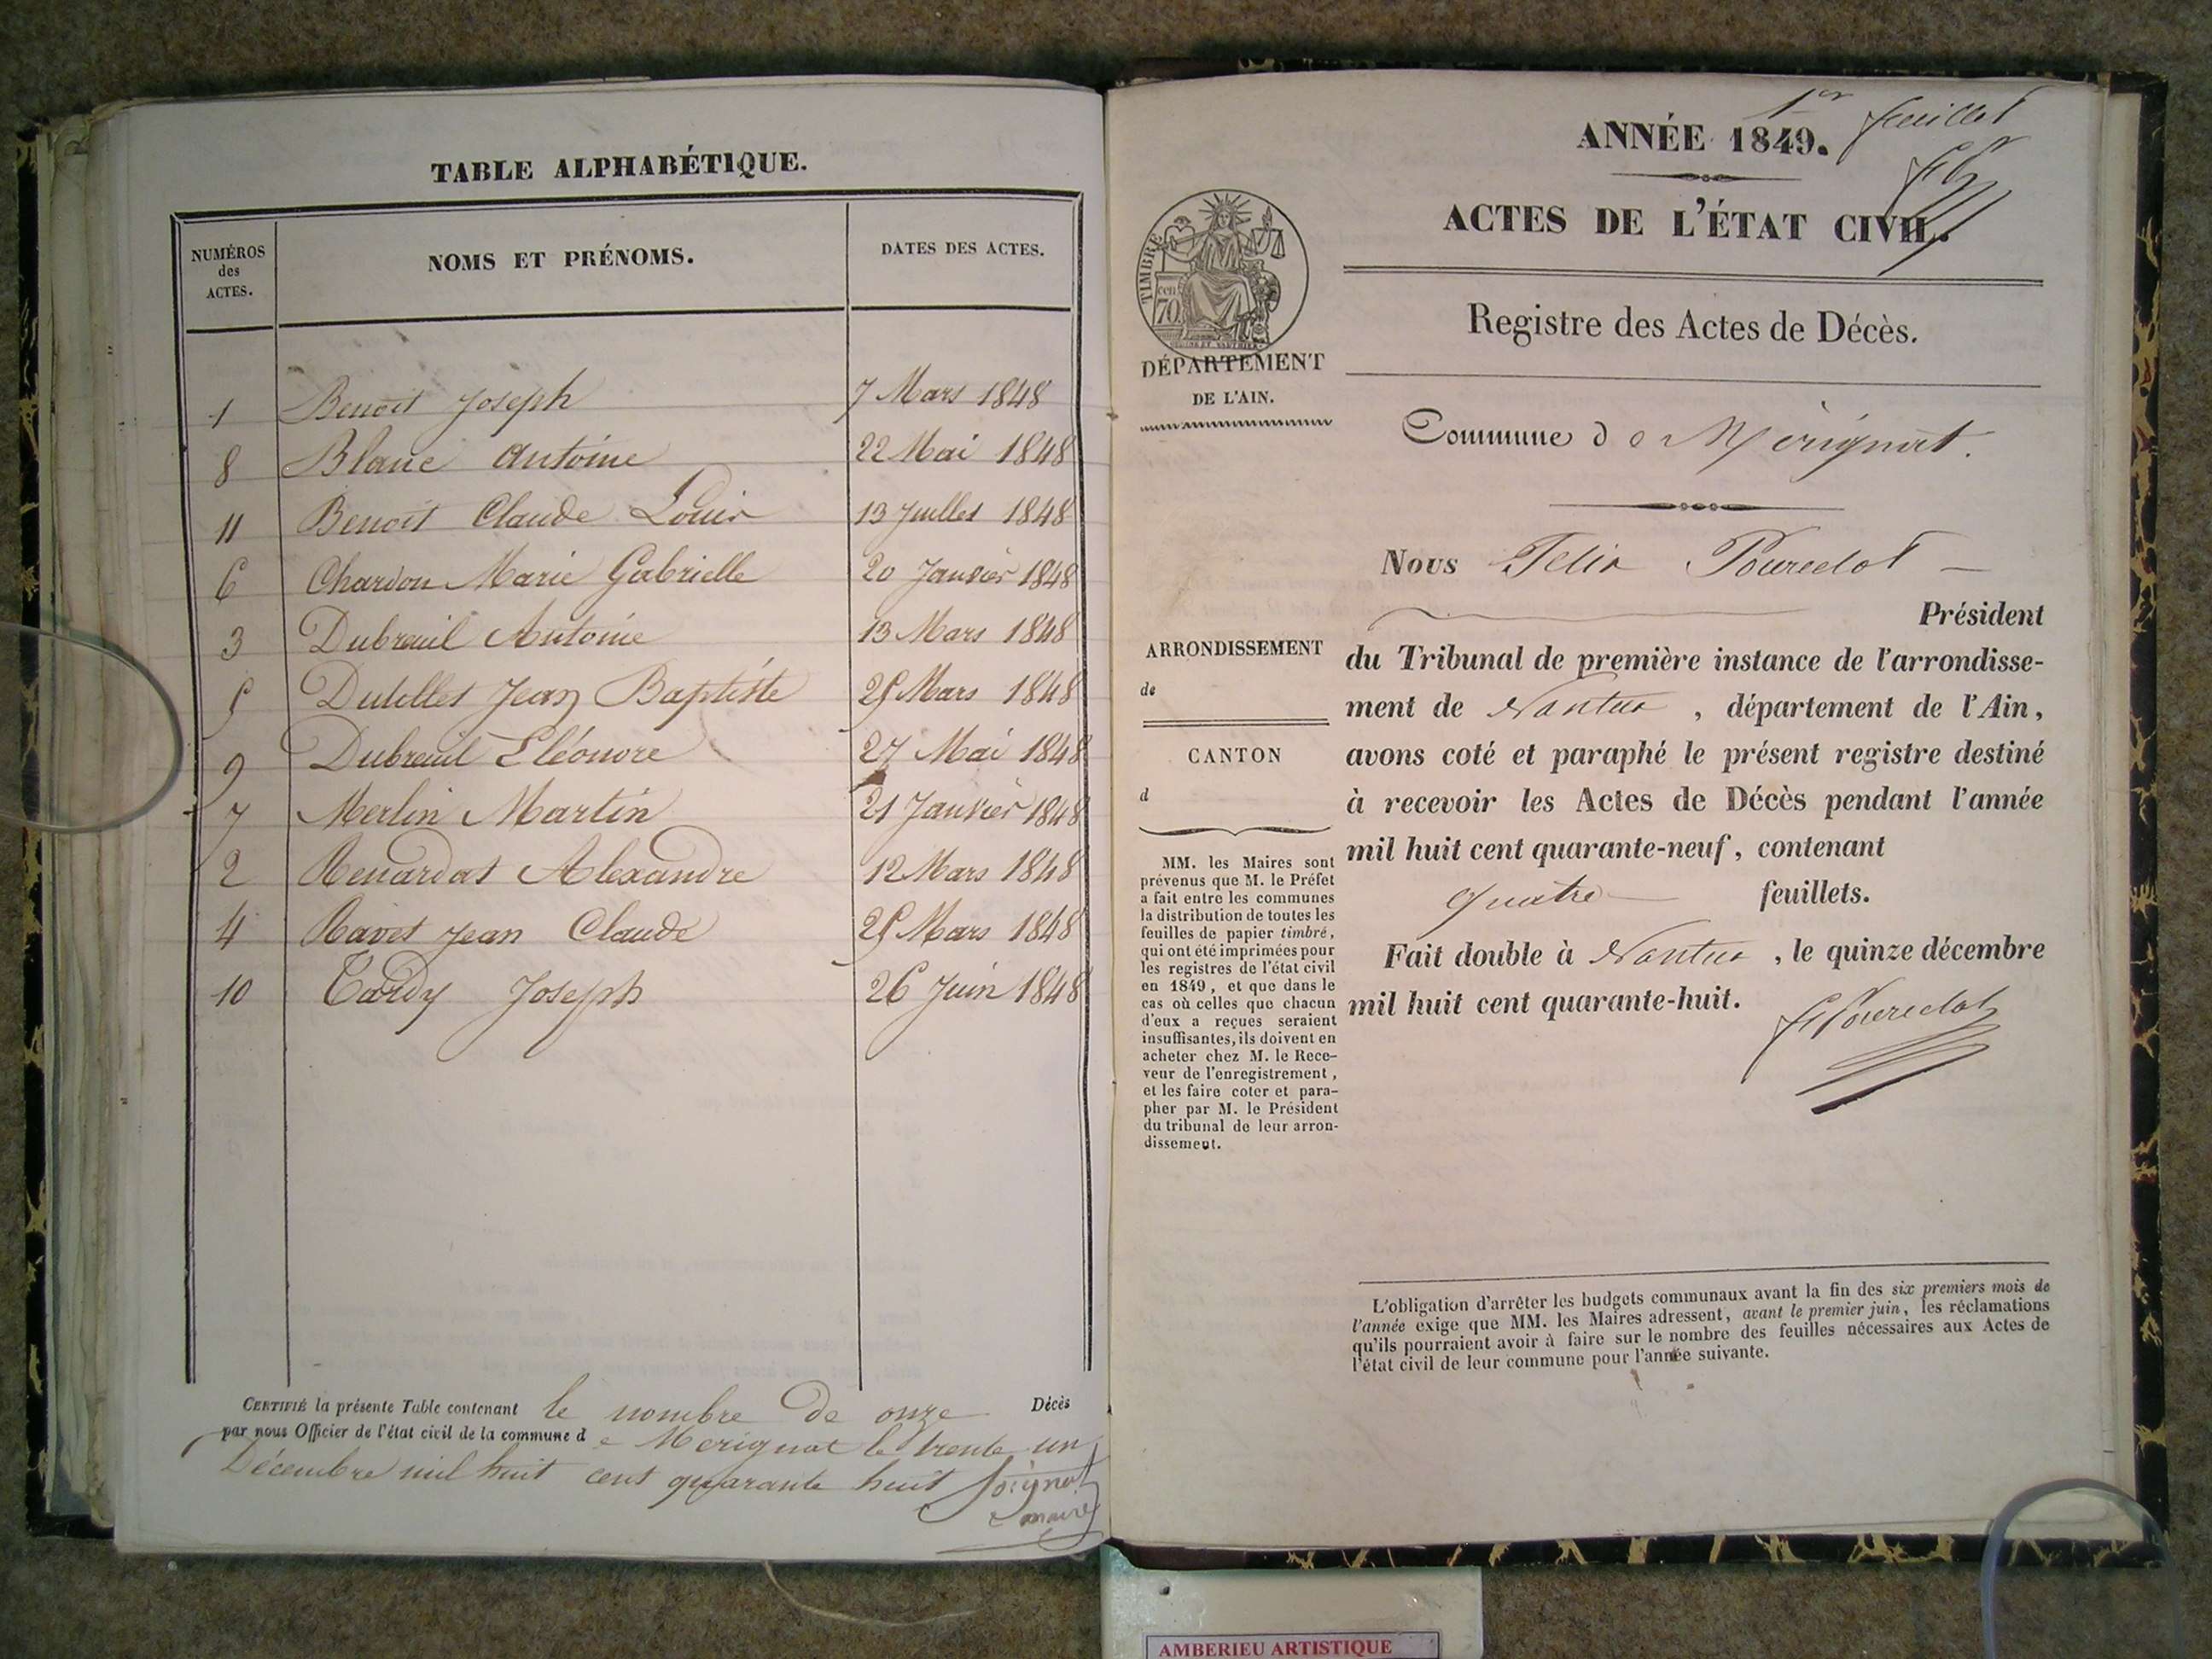 TABLE ALPHABÉTIQUE.
NUMÉROS
des
ACTES.
NOMS ET PRÉNOMS.
DATES DES ACTES.
1 Benoit Joseph 7 Mars 1848
8 Blanc Antoine 22 Mai 1848
11 Benoit Claude Louis 13 Juillet 1848
6 Chardon Marie Gabrielle 20 Janvier 1848
3 Dubreuil Antoine 13 Mars 1848
5 Jean Baptiste 25 Mars 1848
9 Dubreuil Eléonore 27 Mai 1848
7 Merlin Martin 21 Janvier 1848
2 Renardat Alexandre 12 Mars 1848
4 Ravet Jean Claude 25 Mars 1848
10 Tardy Joseph 26 Juin 1848
CERTIFIÉ la présente Table contenant le nombre de onze Décès
par nous Officier de l'état civil de la commune de Merignat le trente un
Décembre mil huit cent quarante huit
maire
1er feuillet
ANNÉE 1849.
ACTES DE L'ÉTAT CIVIL.
TIMBRE
70 cen
DÉPARTEMENT
DE L'AIN.
Registre des Actes de Décès.
Commune de Mérignat.
Nous Felix
Président
du Tribunal de première instance de l'arrondisse-
ment de Nantua, département de l'Ain,
avons coté et paraphé le présent registre destiné
à recevoir les Actes de Décès pendant l'année
mil huit cent quarante-neuf, contenant
quatre feuillets.
Fait double à Nantua, le quinze décembre
mil huit cent quarante-huit.
ARRONDISSEMENT
de
CANTON
d
MM. les Maires sont
prévenus que M. le Préfet
a fait entre les communes
la distribution de toutes les
feuilles de papier timbré,
qui ont été imprimées pour
les registres de l'état civil
en 1849, et que dans le
cas où celles que chacun
d'eux a reçues seraient
insuffisantes, ils doivent en
acheter chez M. le Rece-
veur de l'enregistrement,
et les faire coter et para-
pher par M. le Président
du tribunal de leur arron-
dissement.
L'obligation d'arrêter les budgets communaux avant la fin des six premiers mois de
l'année exige que MM. les Maires adressent, avant le premier juin, les réclamations
qu'ils pourraient avoir à faire sur le nombre des feuilles nécessaires aux Actes de
l'état civil de leur commune pour l'année suivante.
AMBERIEU ARTISTIQUE